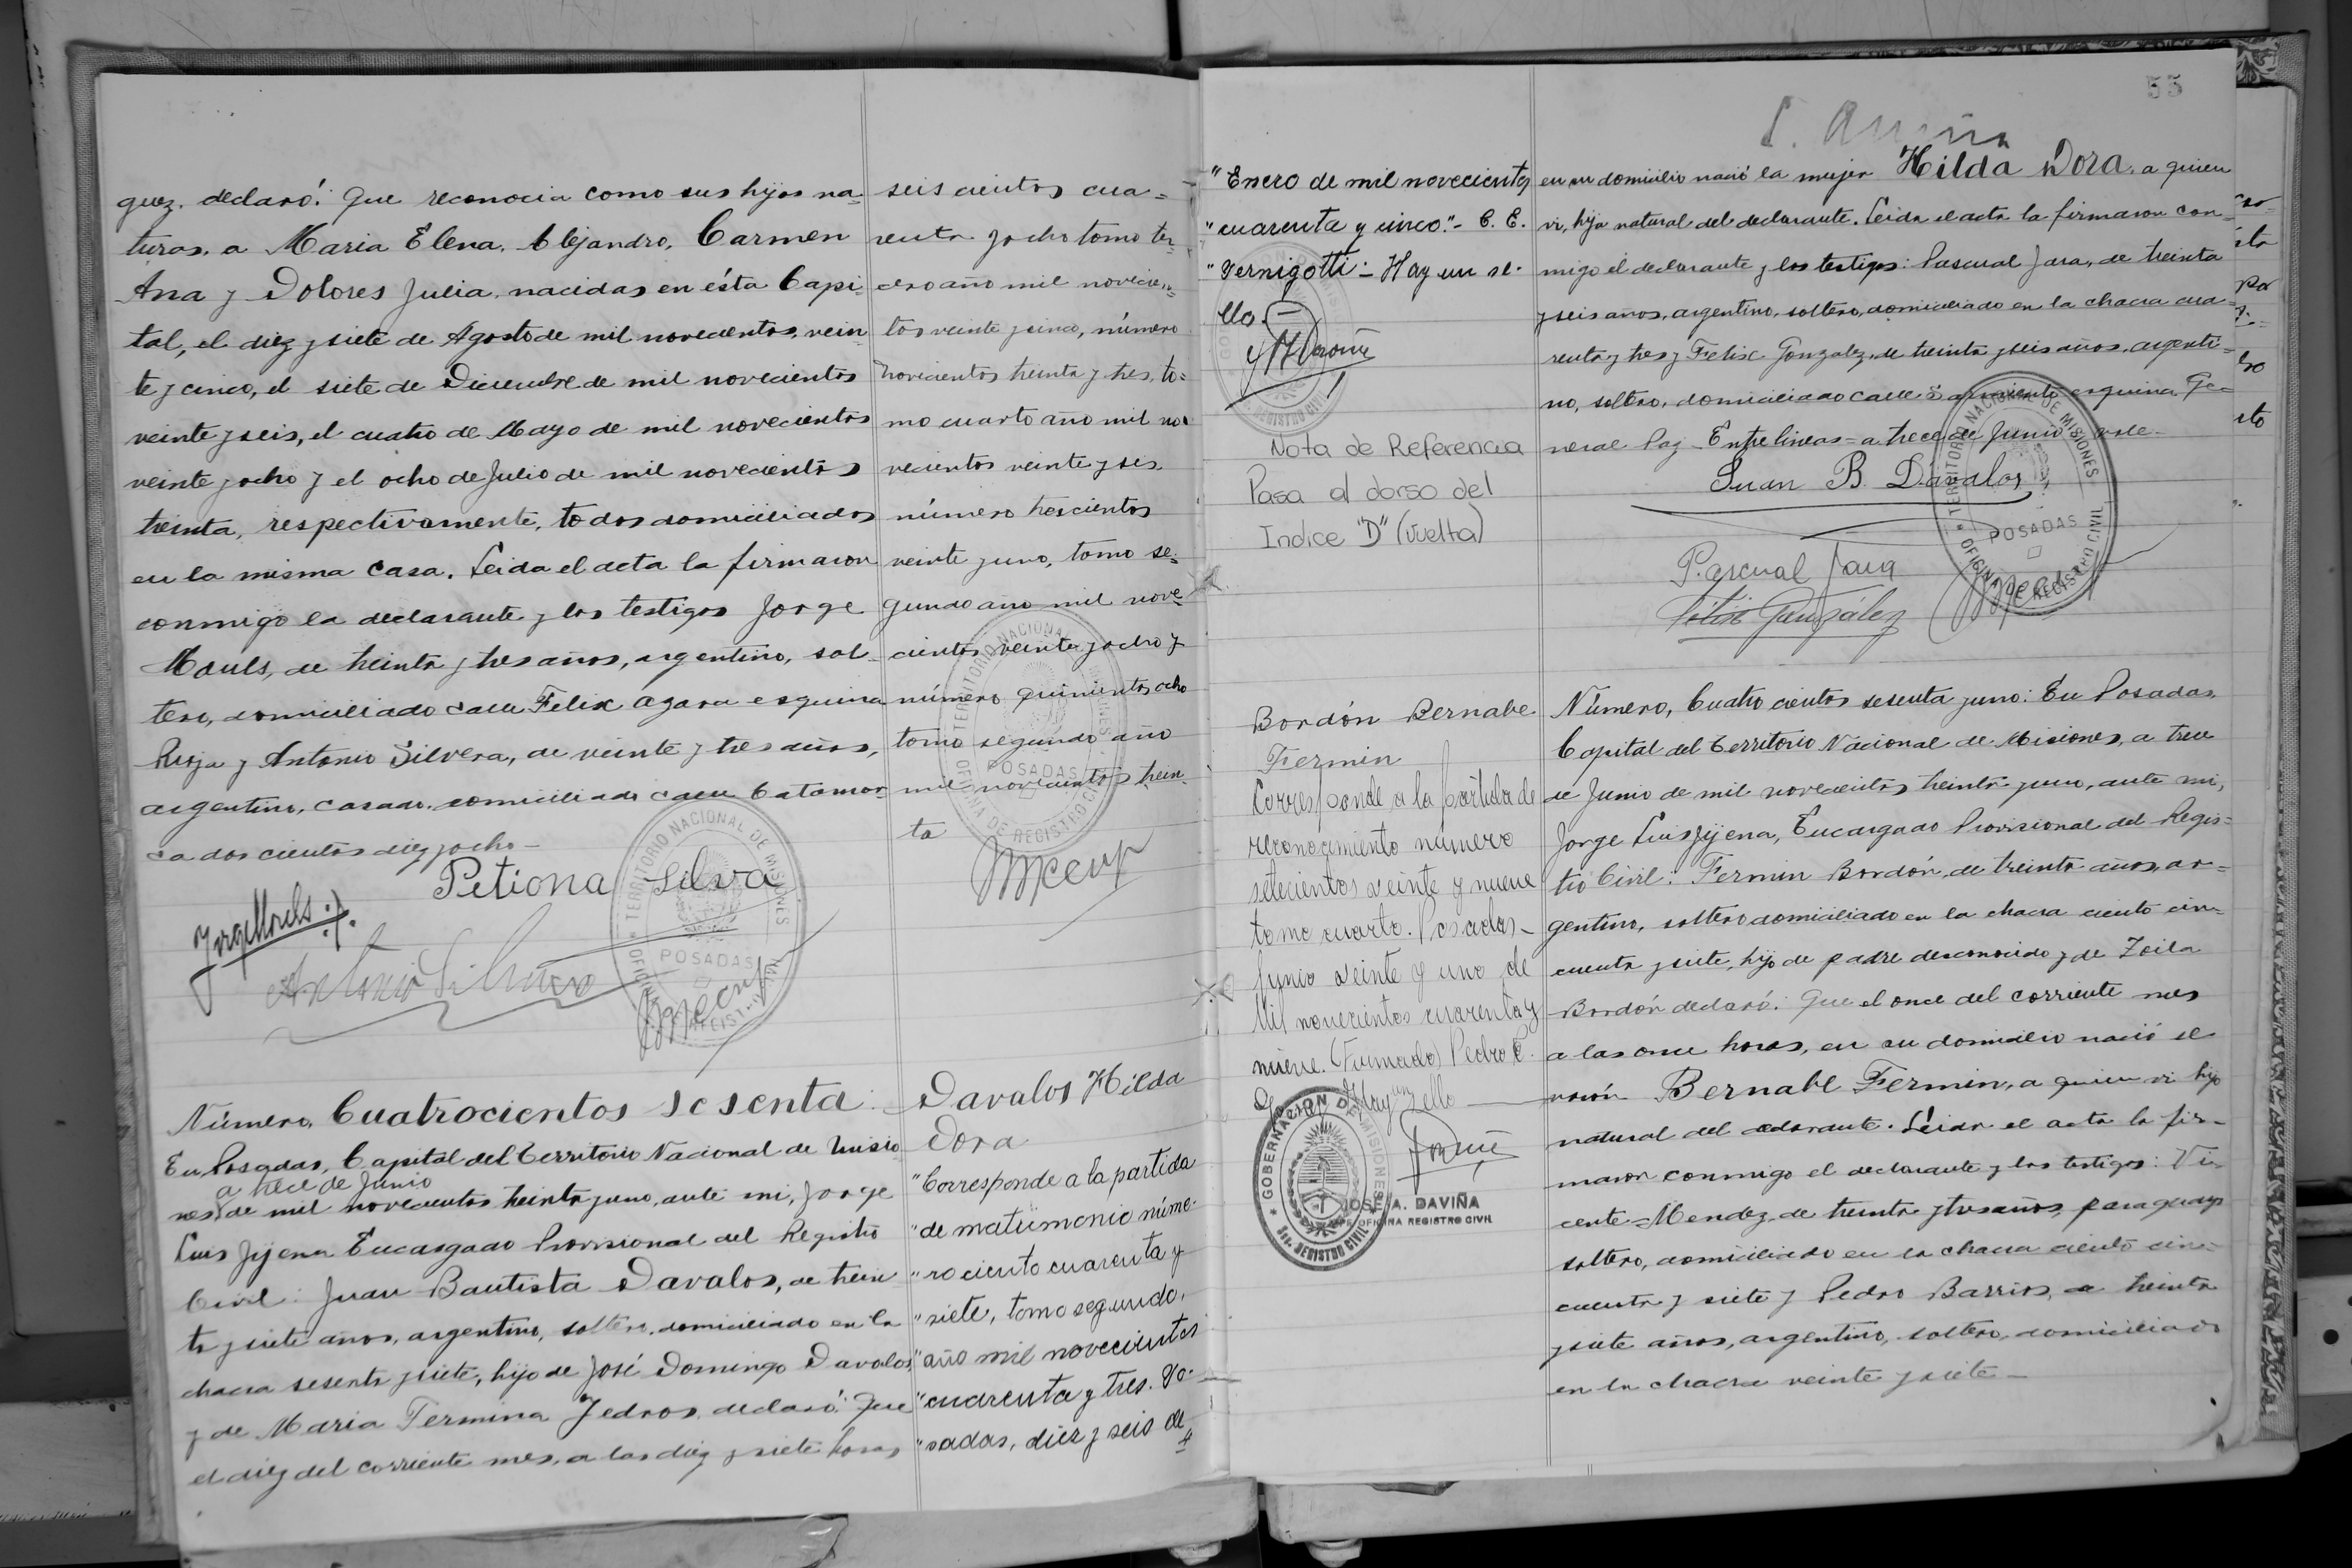 guez, declaró: Que reconocia como sus hijos na-
turas, a Maria Elena, Alejandro, Carmen
Ana y Dolores Julia, nacidas en ésta Capi-
tal, el diez y siete de Agosto de mil novecientos, vein
te y cinco, el siete de Diciembre de mil novecientos
veinte y seis, el cuatro de Mayo de mil novecientos
veinte y ocho y el ocho de Julio de mil novecientos
treinta, respectivamente, todos domiciliados
en la misma casa. Leida el acta la firmaron
conmigo la declarante y los testigos Jorge
Mouls, de treinta y tres años, argentino, sol-
tero, domiciliado calle Felix Azara esquina
Rioja y Antonio Silvera, de veinte y tres años,
argentino, casado, domiciliado calle Catamar-
ca dos cientos diez y ocho -
Petiona Silva
Jorge Mouls
Antonio Silvera
OFICINA DE REGISTRO CIVIL
TERRITORIO NACIONAL DE MISIONES
POSADAS
seis cientos cua=
renta y ocho tomo ter-
cero año mil novecien-
tos veinte y cinco, número
novecientos treinta y tres, to=
mo cuarto año mil no=
vecientos veinte y seis,
número trescientos
veinte y uno, tomo se-
gundo año mil nove-
cientos veinte y ocho y
número quinientos ocho
tomo segundo año
mil novecientos trein-
ta
TERRITORIO NACIONAL DE MISIONES
POSADAS
OFICINA DE REGISTRO CIVIL
Número, Cuatrocientos sesenta:
En Posadas, Capital del Territorio Nacional de Misio
a trece de Junio
nes, de mil novecientos treinta y uno, ante mi, Jorge
Luis Jijena Encargado Provisional del Registro
Civil: Juan Bautista Davalos, de trein
ta y siete años, argentino, soltero, domiciliado en la
chacra sesenta y siete, hijo de José Domingo Davalos
y de Maria Termina Jedros, declaró: Que
el diez del corriente mes, a las diez y siete horas,
Davalos Hilda
Dora
"Corresponde a la partida
"de matrimonio núme-
"ro ciento cuarenta y
"siete, tomo segundo,
"año mil novecientos
"cuarenta y tres. Po-
"sadas, diez y seis de
55
"Enero de mil novecientos
"cuarenta y cinco."- C. E.
"Vernigotti:- Hay un se-
llo.-
Nota de Referencia
Pasa al dorso del
Indice "D" (Vuelta)
en su domicilio nació la mujer Hilda Dora, a quien
vi, hija natural del declarante. Leida el acta la firmaron con-
migo el declarante y los testigos: Pascual Jara, de treinta
y seis años, argentino, soltero, domiciliado en la chacra cua-
renta y tres y Felix Gonzalez, de treinta y seis años, argenti-
no, soltero, domiciliado calle Sarmiento esquina Ge-
neral Paz - Entre lineas = a trece de Junio = vale -
Juan B. Davalos
Pascual Jara
Félix González
TERRITORIO NACIONAL DE MISIONES
POSADAS
OFICINA DE REGISTRO CIVIL
Bordón Bernabe
Fermin
Corresponde a la partida de
reconocimiento número
setecientos veinte y nueve
tomo cuarto. Posadas-
Junio veinte y uno de
Mil novecientos cuarenta y
nueve. (Firmado) Pedro C.
Hay un sello
GOBERNACION DE MISIONES
REGISTRO CIVIL
JOSE A. DAVIÑA
JEFE OFICINA REGISTRO CIVIL
Número, Cuatro cientos sesenta y uno: En Posadas,
Capital del Territorio Nacional de Misiones, a trece
de Junio de mil novecientos treinta y uno, ante mi,
Jorge Luis Jijena, Encargado Provisional del Regis-
tro Civil: Fermin Bordón, de treinta años, ar-
gentino, soltero domiciliado en la chacra ciento cin-
cuenta y siete, hijo de padre desconocido y de Zoila
Bordón declaró: Que el once del corriente mes
a las once horas, en su domicilio nació el
varón Bernabe Fermin, a quien vi hijo
natural del declarante. Leida el acta la fir-
maron conmigo el declarante y los testigos: Vi-
cente = Mendez, de treinta y tres años, paraguayo
soltero, domiciliado en la chacra ciento cin-
cuenta y siete y Pedro Barrios, de treinta
y siete años, argentino, soltero, domiciliado
en la chacra veinte y siete -